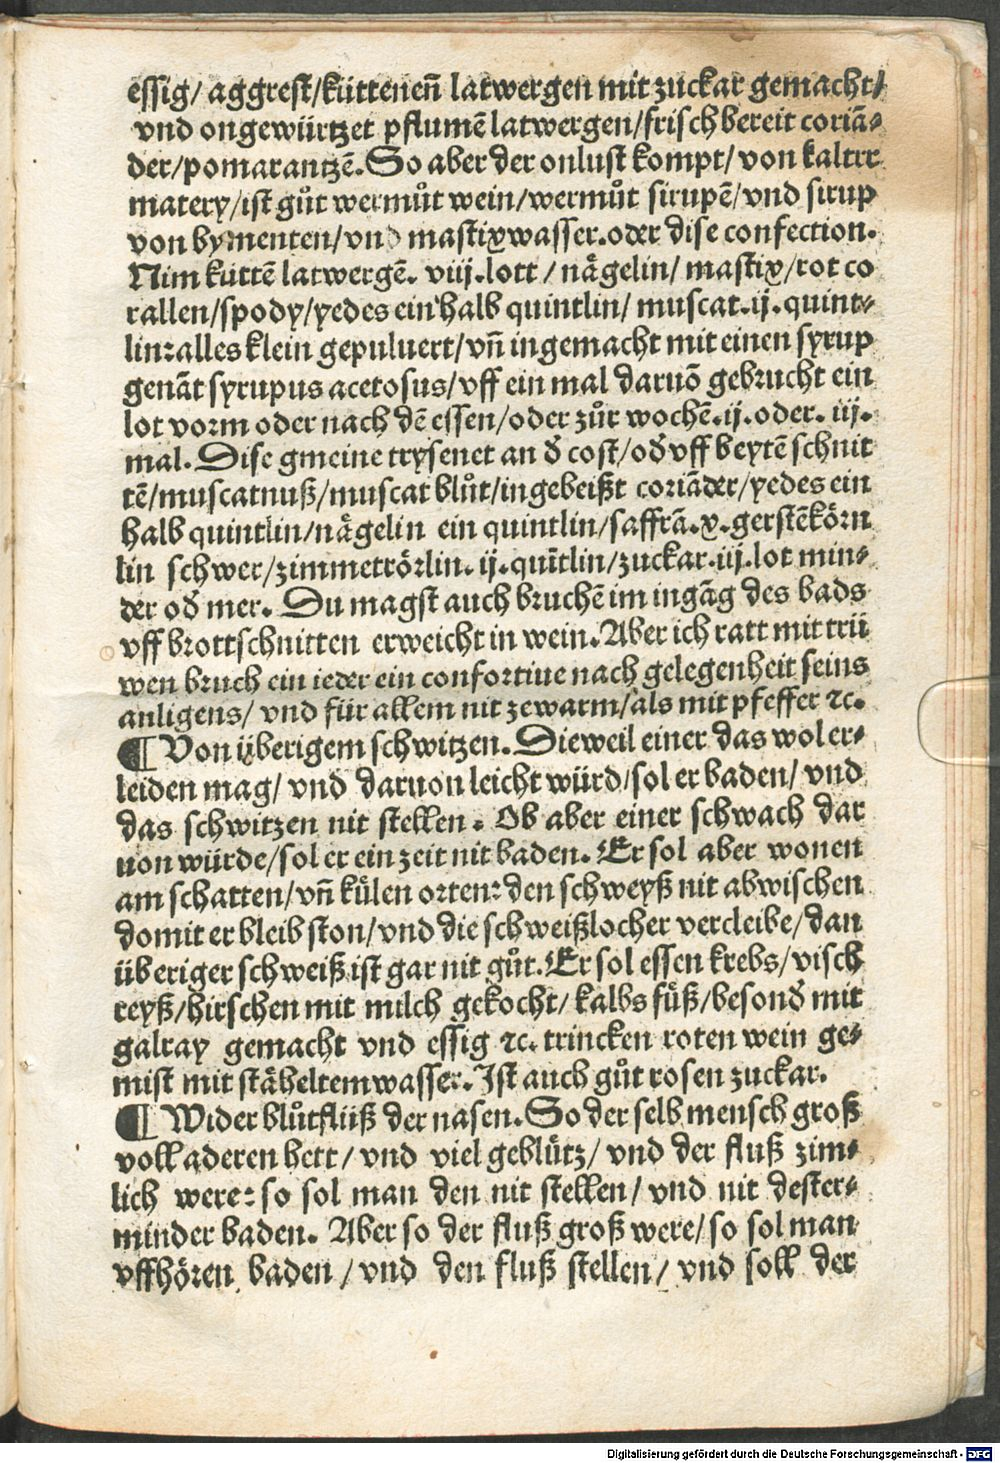 essig/ aggrest/küttenen̄ latwergen mit zuckar gemacht/
vnd ongewürtzet pflumē latwergen/frisch bereit coriā⸗
der/pomarantzē. So aber der onlust kompt/ von kaltrr
matery/ist gůt wermůt wein/wermůt sirupē/vnd sirup
von bymenten/vnd mastixwasser.oder dise confection.
Nim küttē latwergē. viij.lott / nägelin/ mastix/rot co
rallen/spody/yedes ein halb quintlin/ muscat.ij.quint⸗
lin:alles klein gepuluert/vn̄ ingemacht mit einen syrup
genāt syrupus acetosus/vff ein mal daruō gebrucht ein
lot vorm oder nach dē essen/oder zůr wochē.ij.oder. iij.
mal. Dise gmeine trysenet an ď cost/oď vff beytē schnit
tē/muscatnuß/muscat blůt/ingebeißt coriāder/yedes ein
halb quintlin/nägelin ein quintlin/saffrā.x.gerstēkörn
lin schwer/zimmetrörlin.ij.quītlin/zuckar.iij.lot min⸗
der oď mer. Du magst auch bruchē im ingāg des bads
vff brottschnitten erweicht in wein. Aber ich ratt mit trü
wen bruch ein ieder ein confortiue nach gelegenheit seins
anligens/ vnd für allem nit zewarm/als mit pfeffer ꝛc.
¶ Von überigem schwitzen. Dieweil einer das wol er⸗
leiden mag/ vnd daruon leicht würd/sol er baden/ vnd
das schwitzen nit stellen. Ob aber einer schwach dar
uon würde/sol er ein zeit nit baden. Er sol aber wonen
am schatten/vn̄ külen orten:den schweyß nit abwischen
domit er bleib ston/vnd die schweißlocher vercleibe/dan
überiger schweiß ist gar nit gůt. Er sol essen krebs/visch
reyß/hirschen mit milch gekocht/ kalbs füß/besonď mit
galray gemacht vnd essig ꝛc. trincken roten wein ge⸗
mist mit stäheltem wasser. Ist auch gůt rosen zuckar.
¶ Wider blůtflüß der nasen. So der selb mensch groß
voll aderen hett/ vnd viel geblütz/ vnd der fluß zim⸗
lich were: so sol man den nit stellen/ vnd nit dester⸗
minder baden. Aber so der fluß groß were/so sol man
vffhören baden / vnd den fluß stellen/ vnd soll der
Digitalisierung gefördert durch die Deutsche Forschungsgemeinschaft - DFG